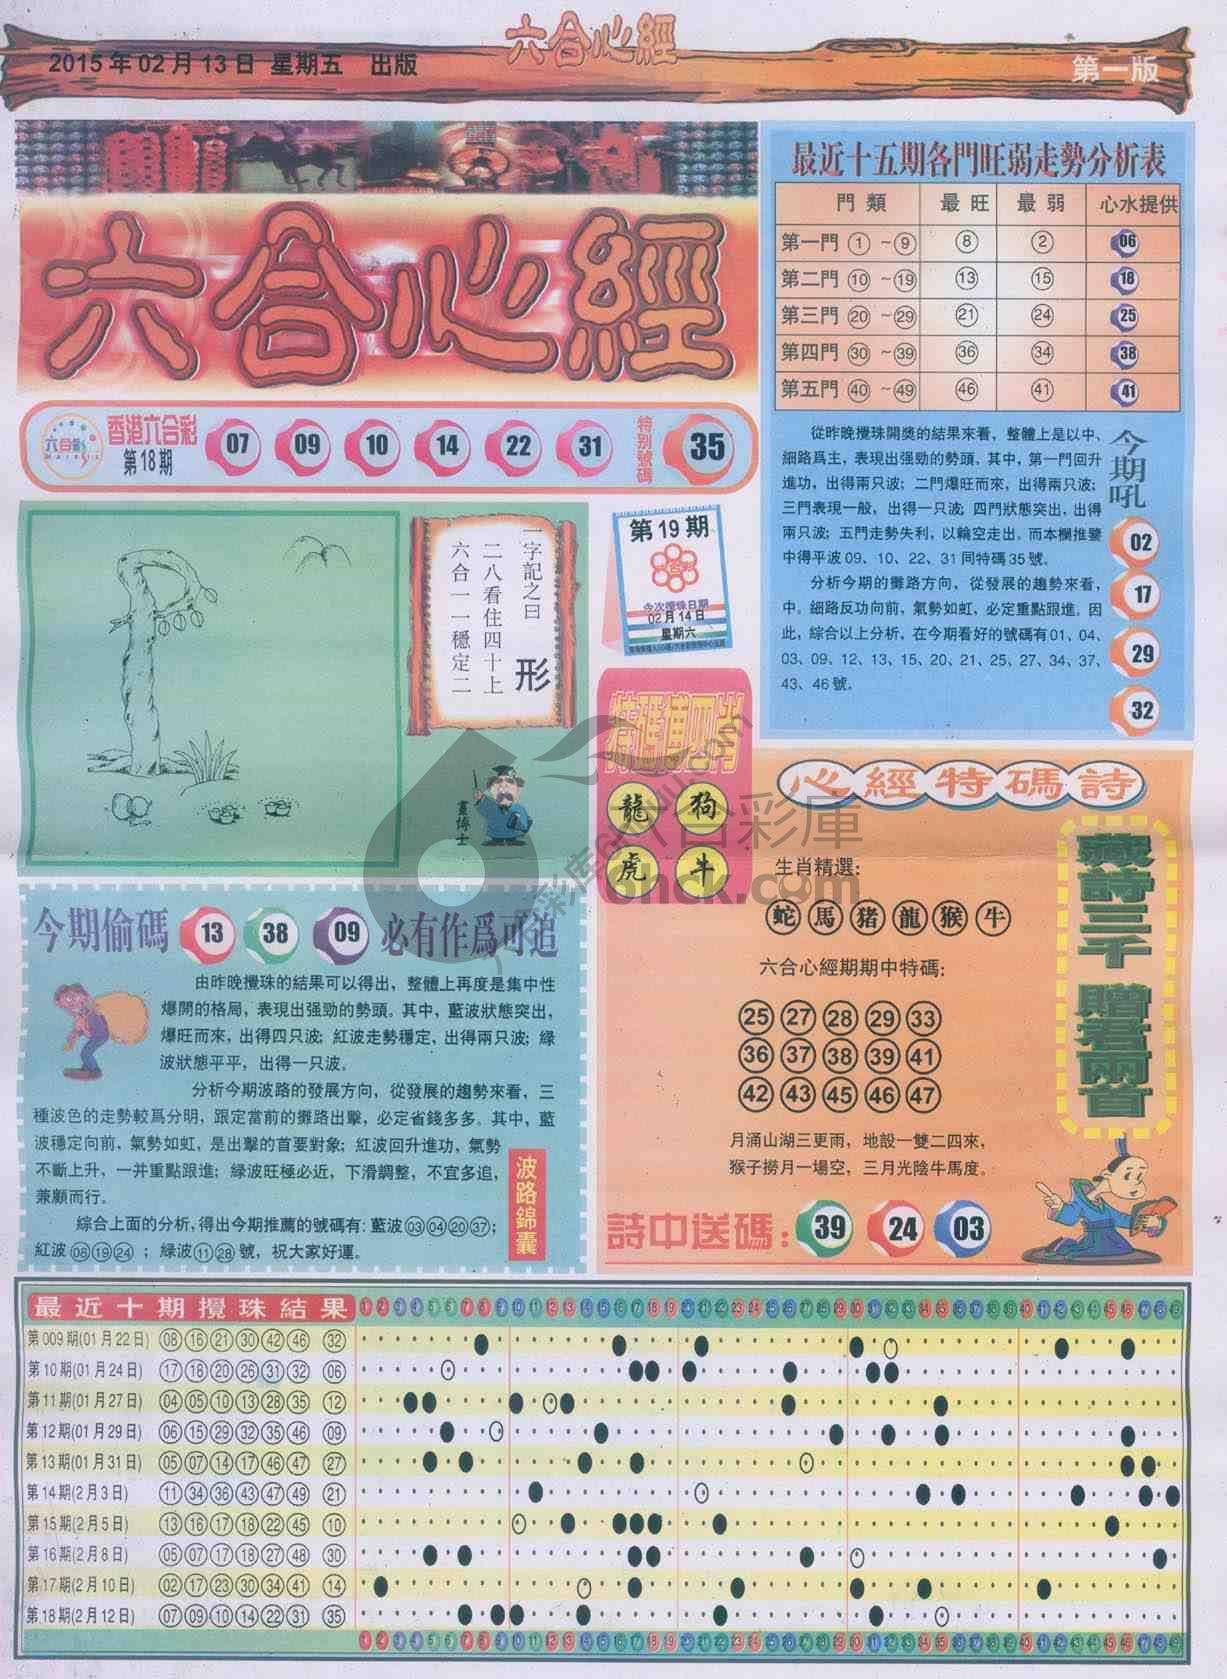 六合心經
2015年02月13日 星期五 出版
第一版
六合心經
香港六合彩
第18期
07 09 10 14 22 31
特別號碼
35
最近十五期各門旺弱走勢分析表
門類 最旺 最弱 心水提供
第一門 ①~⑨ ⑧ ② 06
第二門 ⑩~⑲ ⑬ ⑮ 18
第三門 ⑳~㉙ ㉑ ㉔ 25
第四門 ㉚~㊴ ㊱ ㉞ 38
第五門 ㊵~㊾ ㊻ ㊶ 41
從昨晚攪珠開獎的結果來看，整體上是以中、
細路爲主，表現出强勁的勢頭，其中，第一門回升
進功，出得兩只波；二門爆旺而來，出得兩只波；
三門表現一般，出得一只波；四門狀態突出，出得
兩只波；五門走勢失利，以輪空走出。而本欄推鑒
中得平波09、10、22、31同特碼35號。
分析今期的攤路方向，從發展的趨勢來看，
中。細路反功向前，氣勢如虹，必定重點跟進。因
此，綜合以上分析，在今期看好的號碼有01、04、
03、09、12、13、15、20、21、25、27、34、37、
43、46號。
今期吼
02
17
29
32
一字記之曰 形
二八看住四十上
六合一一穩定二
畫博士
第19期
六合彩
今次攪珠日期
02月14日
星期六
特碼博四肖
龍 狗
虎 牛
心經特碼詩
生肖精選：
蛇 馬 猪 龍 猴 牛
六合心經期期中特碼：
25 27 28 29 33
36 37 38 39 41
42 43 45 46 47
月涌山湖三更雨，地設一雙二四來，
猴子撈月一場空，三月光陰牛馬度。
詩中送碼：39 24 03
藏詩三千 贈君兩首
今期偷碼 13 38 09 必有作爲可追
由昨晚攪珠的結果可以得出，整體上再度是集中性
爆開的格局，表現出强勁的勢頭。其中，藍波狀態突出，
爆旺而來，出得四只波；紅波走勢穩定，出得兩只波；緑
波狀態平平，出得一只波。
分析今期波路的發展方向，從發展的趨勢來看，三
種波色的走勢較爲分明，跟定當前的攤路出擊，必定省錢多多。其中，藍
波穩定向前，氣勢如虹，是出擊的首要對象；紅波回升進功，氣勢
不斷上升，一并重點跟進；緑波旺極必近，下滑調整，不宜多追，
兼顧而行。
綜合上面的分析，得出今期推薦的號碼有：藍波03 04 20 37；
紅波08 19 24；緑波11 28號，祝大家好運。
波路錦囊
六合彩庫
6hck.com
最近十期攪珠結果
1 2 3 4 5 6 7 8 9 10 11 12 13 14 15 16 17 18 19 20 21 22 23 24 25 26 27 28 29 30 31 32 33 34 35 36 37 38 39 40 41 42 43 44 45 46 47 48 49
第009期(01月22日) 08 16 21 30 42 46 32
第10期(01月24日) 17 18 20 26 31 32 06
第11期(01月27日) 04 05 10 13 28 35 12
第12期(01月29日) 06 15 29 32 35 46 09
第13期(01月31日) 05 07 14 17 46 47 27
第14期(2月3日) 11 34 36 43 47 49 21
第15期(2月5日) 13 16 17 18 22 45 10
第16期(2月8日) 05 07 17 18 27 48 30
第17期(2月10日) 02 17 23 30 34 41 14
第18期(2月12日) 07 09 10 14 22 31 35
1 2 3 4 5 6 7 8 9 10 11 12 13 14 15 16 17 18 19 20 21 22 23 24 25 26 27 28 29 30 31 32 33 34 35 36 37 38 39 40 41 42 43 44 45 46 47 48 49